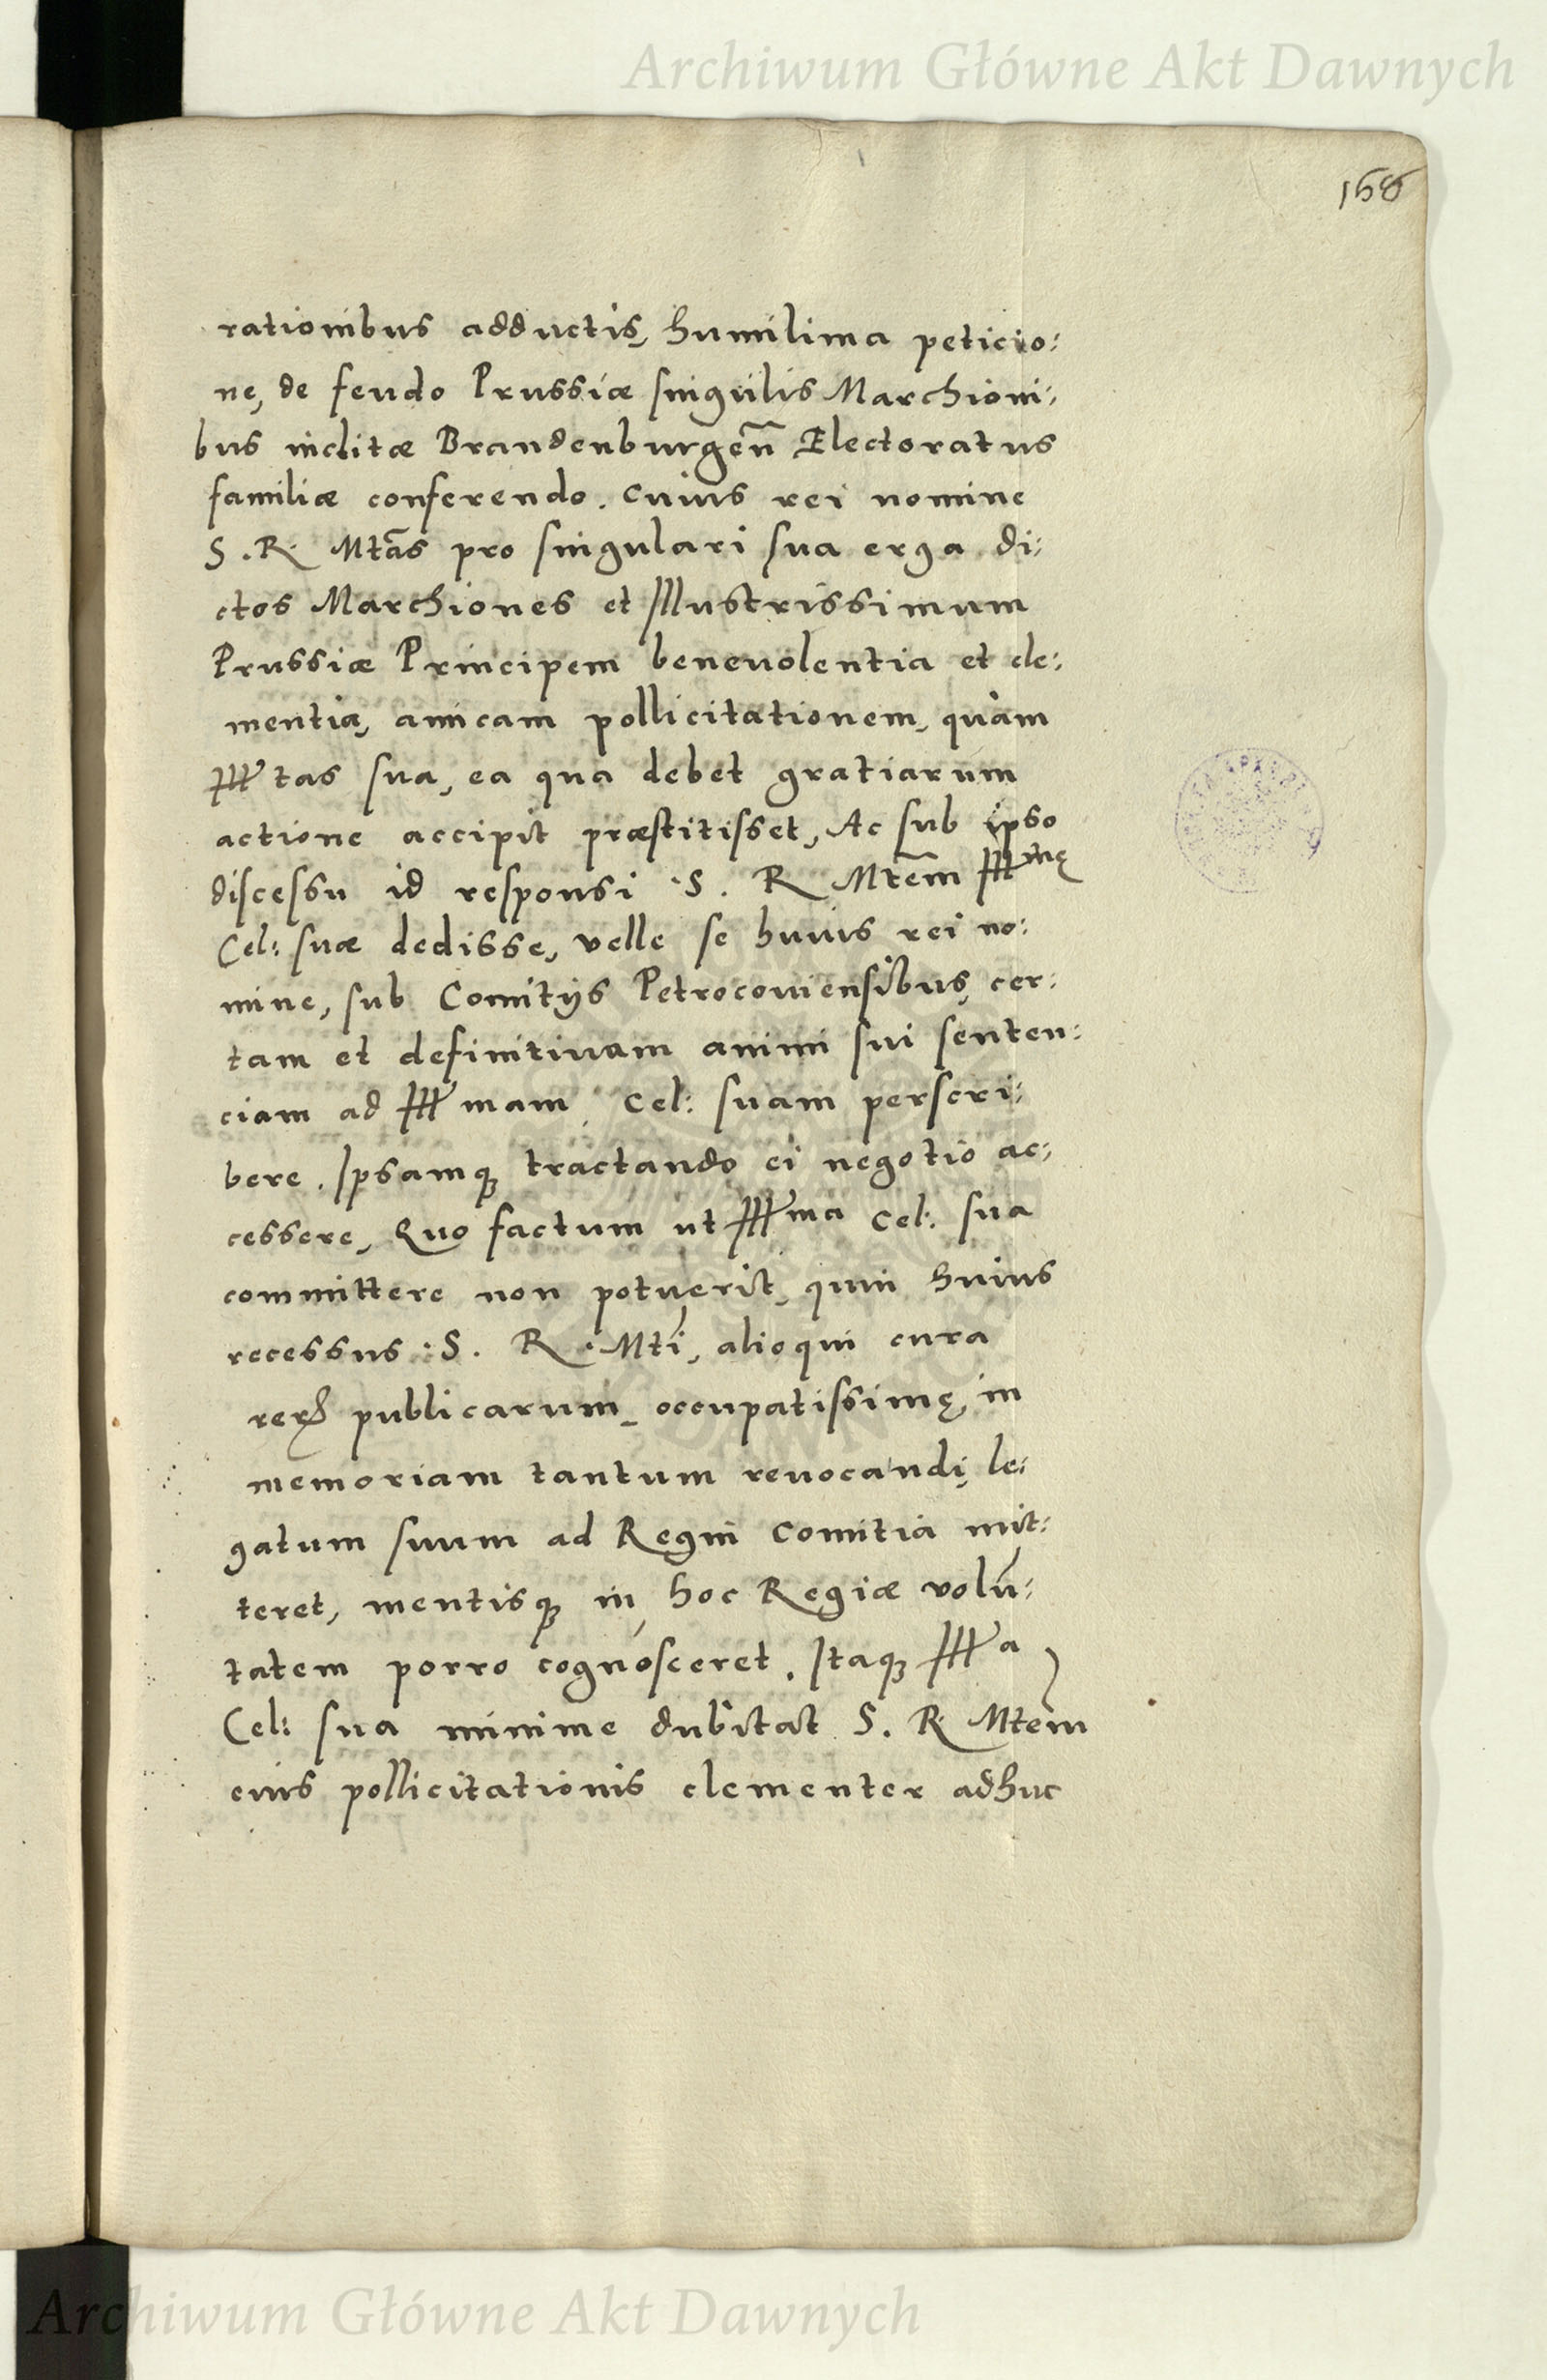 Archiwum Główne Akt Dawnych
168
rationibus adductis, humilima peticio:
ne, de feudo Prussiæ singulis Marchioni:
bus inclitæ Brandenburgen̄ Electoratus
familiæ conferendo. cuius rei nomine
S. R. Mtas pro singulari sua erga di:
ctos Marchiones et Illustrissimum
Prussiæ Principem beneuolentia et cle:
mentia, amicam pollicitationem, quàm
Illtas sua, ea qua debet gratiarum
actione accipit præstitisset, Ac sub ipso
discessu id responsi S. R Mtem Illmę
Cel: suæ dedisse, velle se huius rei no:
mine, sub Comitijs Petrocouiensibus, cer:
tam et definitiuam animi sui senten:
ciam ad Illmam Cel: suam perscri:
bere. Ipsamq3 tractando ei negotio ac:
cessere, Quo factum ut Illma Cel: sua
committere non potuerit, quin huius
recessus S. R. Mti, alioqui cura
rerꝝ publicarum, occupatissimę, in
memoriam tantum reuocandi, le:
gatum suum ad Regni Comitia mit:
teret, mentisq3 in hoc Regiæ volun:
tatem porro cognosceret. Itaq3 Illa
Cel: sua minime dubitat S. R. Mtem
eius pollicitationis clementer adhuc
Archiwum Główne Akt Dawnych